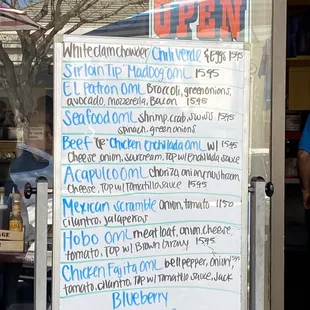 OPEN
White clam chowder Chili Verde & Eggs 15.95
Sirloin Tip "Mad Dog" OML 15.95
El Patron OML Broccoli, green onions,
avocado, mozzerella, Bacon 15.95
Seafood OML shrimp, crab, swiss 15.95
spinach, green onions
Beef Tip Chicken enchilada OML w/
cheese onion, sour cream, Top w/ enchilada sauce
Acapulco OML chorizo, onion, mushroom
cheese, Top w/ Tomatillo sauce 15.95
Mexican scramble onion, tomato 11.50
cilantro, jalapeños
Hobo OML meat loaf, onion, cheese,
tomato, Top w/ Brown Gravy 15.95
Chicken Fajita OML bell pepper, onion,
tomato, cilantro, Top w/ Tomatillo sauce, Jack
Blueberry